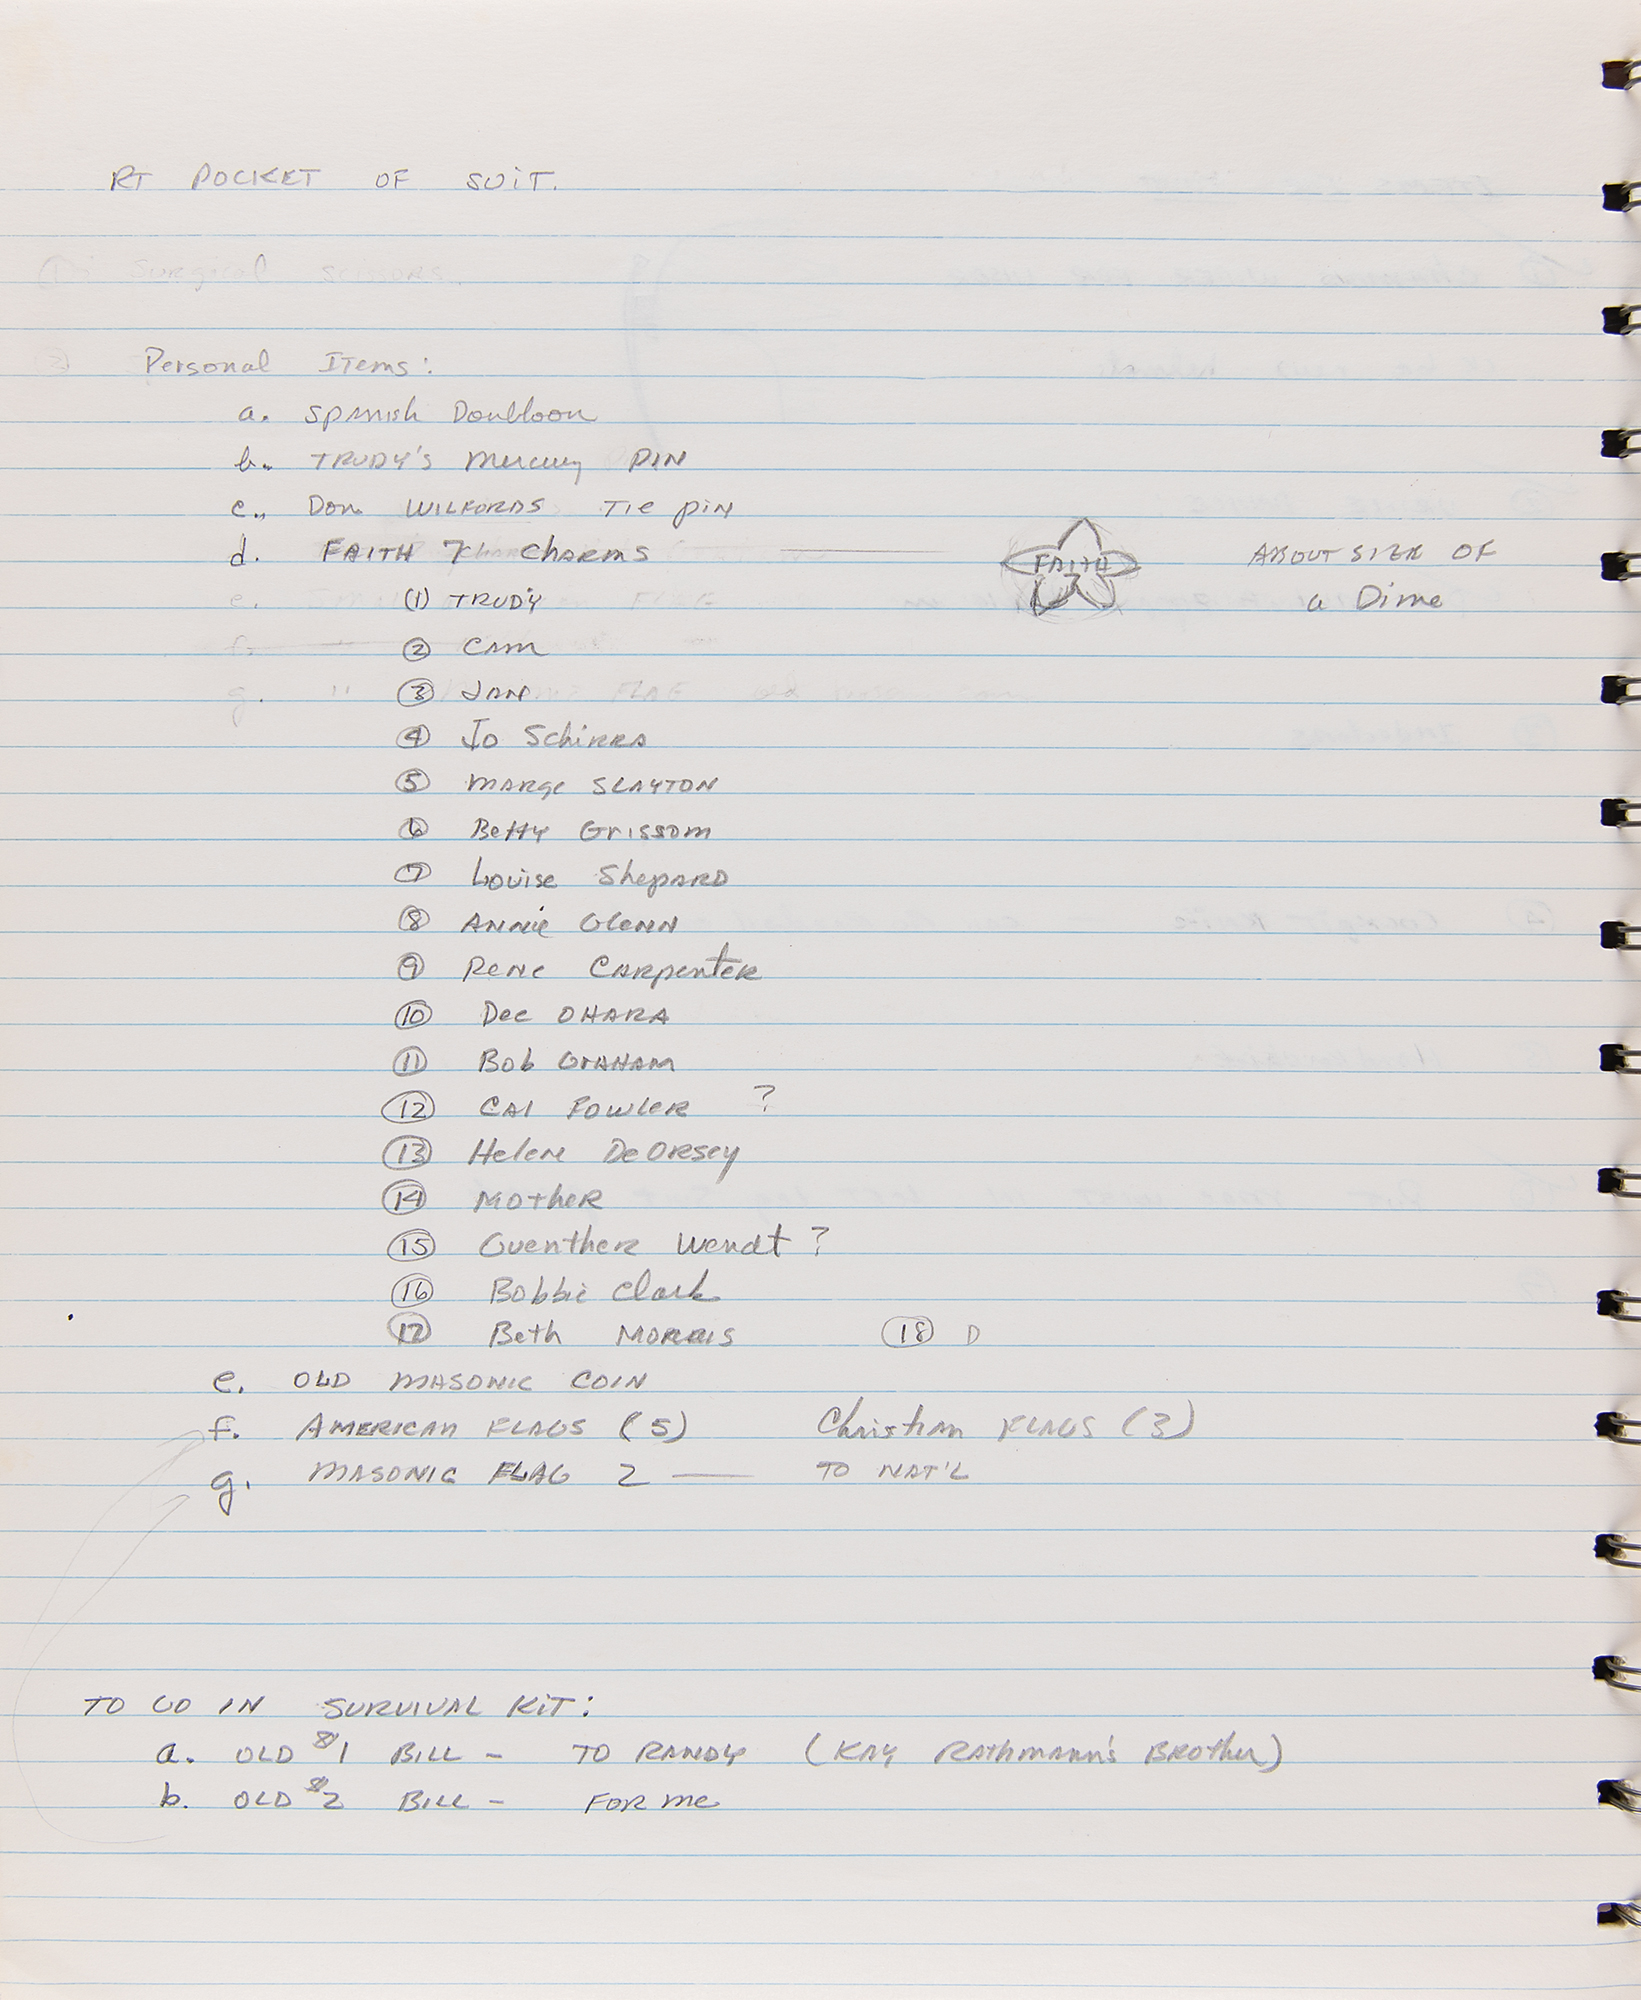 RT POCKET OF SUIT.
① Surgical scissors.
Personal Items:
a. Spanish Doubloon
b. TRUDY'S Mercury PIN
c. Don WILFORDS Tie pin
d. FAITH 7 Charms — FAITH 7 ABOUT SIZE OF
a Dime
e. FLAG
(1) TRUDY
② CAM
f.
③ JAN
g. " FLAG
④ Jo Schirra
⑤ Marge SLAYTON
⑥ Betty Grissom
⑦ Louise Shepard
⑧ ANNIE GLENN
⑨ Rene Carpenter
⑩ Dee OHARA
⑪ Bob GRAHAM
⑫ CAl FOWLER ?
⑬ Helene DeOrsey
⑭ Mother
⑮ Guenther Wendt ?
⑯ Bobbie Clark
⑰ Beth MORRIS ⑱ D
e. OLD MASONIC COIN
f. AMERICAN FLAGS (5) Christian FLAGS (3)
g. MASONIC FLAG 2 — TO NAT'L
TO GO IN SURVIVAL KIT:
a. OLD $1 BILL - TO RANDY (KAY Rathmann's BROTHER)
b. OLD $2 BILL - FOR ME